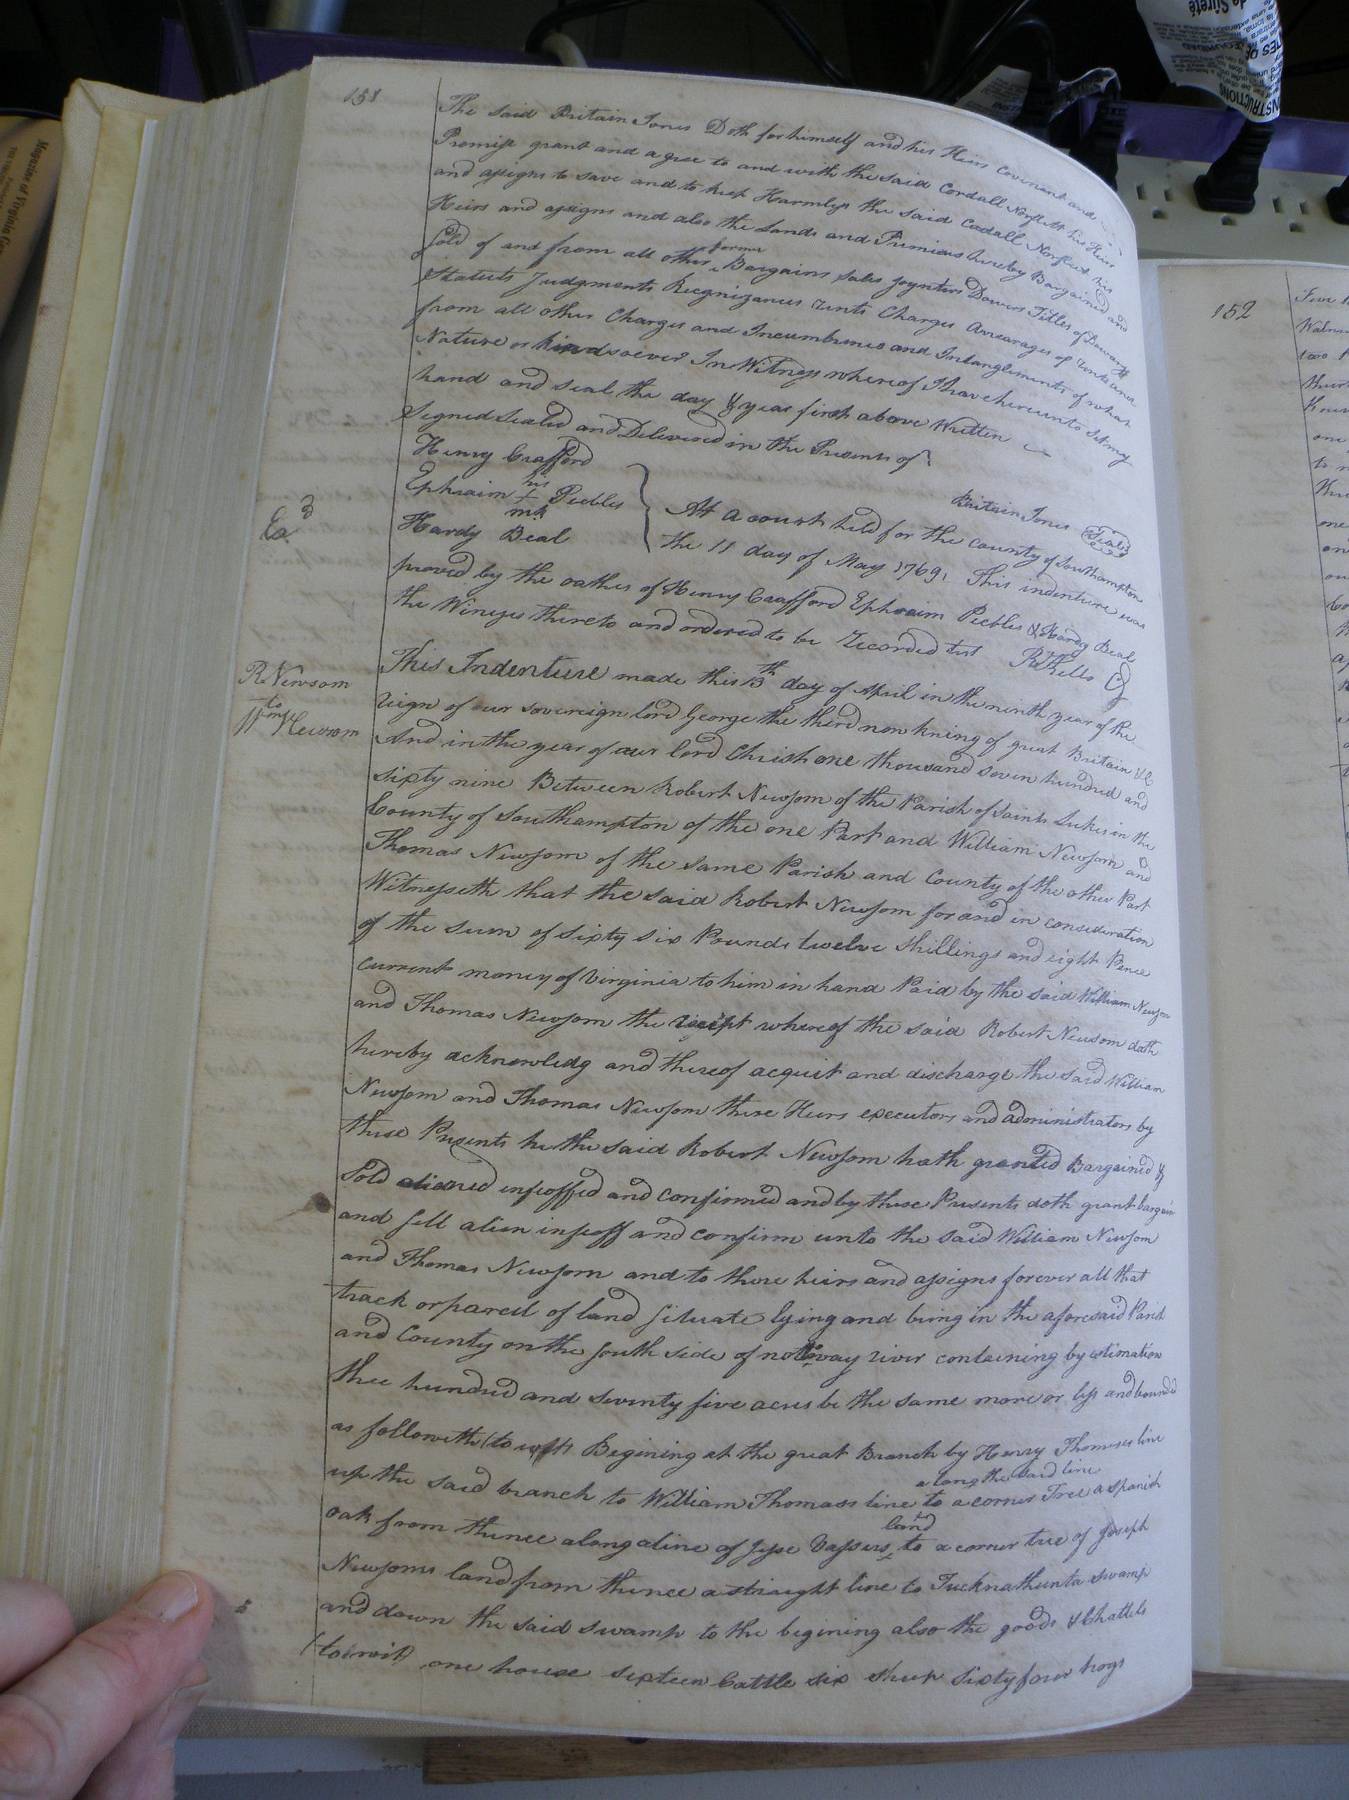 151
The said Britain Jones Doth for himself and his Heirs covenant and
Promise grant and agree to and with the said Cordall Norfleet his Heirs
and assigns to save and to keep Harmless the said Cordall Norfleet his
Heirs and assigns and also the Lands and Primises hereby Bargained and
Sold of and from all other former Bargains Sales Joynturs Dowers Titles of Dower
Statuts Judgments Recgnizances rents Charges Arrearages of rents and
from all other Charges and Incumbrances and Intanglements of what
Nature or kindsoever In Witness whereof I have hereunto set my
hand and seal the day & year first above Written
Signed Sealed and Delivered in the Presents of
Henry Crafford
Ephraim his + mk Peebles
Hardy Beal
Britain Jones (Seal)
Exd
At a court held for the county of Southampton
the 11 day of May 1769, This indenture was
proved by the oathes of Henry Crafford Ephraim Peebles & Hardy Beal
the Winesses thereto and ordered to be recorded test R Kello C
R Newsom
to
Wm Newsom
This Indenture made this 13th day of April in the ninth year of the
reign of our sovereign lord George the third now kning of great Britain &c
And in the year of our lord Christ one thousand seven hundred and
sixty nine Between Robert Newsom of the Parish of Saints Lukes in the
County of Southampton of the one Part and William Newsom and
Thomas Newsom of the same Parish and County of the other Part
Witnesseth that the said Robert Newsom for and in consideration
of the sum of sixty six Pounds twelve shillings and eight Pence
current money of Virginia to him in hand Paid by the said William Newsom
and Thomas Newsom the receipt whereof the said Robert Newsom doth
hereby acknowledg and thereof acquit and discharge the said William
Newsom and Thomas Newsom there Heirs executors and administrators by
these Presents he the said Robert Newsom hath granted Bargained &
Sold aliened infeoffed and confirmed and by these Presents doth grant bargain
and sell alien infeoff and confirm unto the said William Newsom
and Thomas Newsom and to there heirs and assigns forever all that
track or parcell of land situate lying and being in the aforesaid Parish
and County on the south side of nottoway river containing by estimation
thee hundred and seventy five acres be the same more or less and bounded
as followeth (to witt) Begining at the great Branch by Henry Thomases line
up the said branch to William Thomass line along the said line to a corner Tree a spanish
oak from thence along a line of Jesse Vassers land to a corner tree of Joseph
Newsoms land from thence a straight line to Tucknathunta swamp
and down the said swamp to the begining also the goods & Chattels
(towit) one house sixteen Cattle six sheep sixty four hogs
152